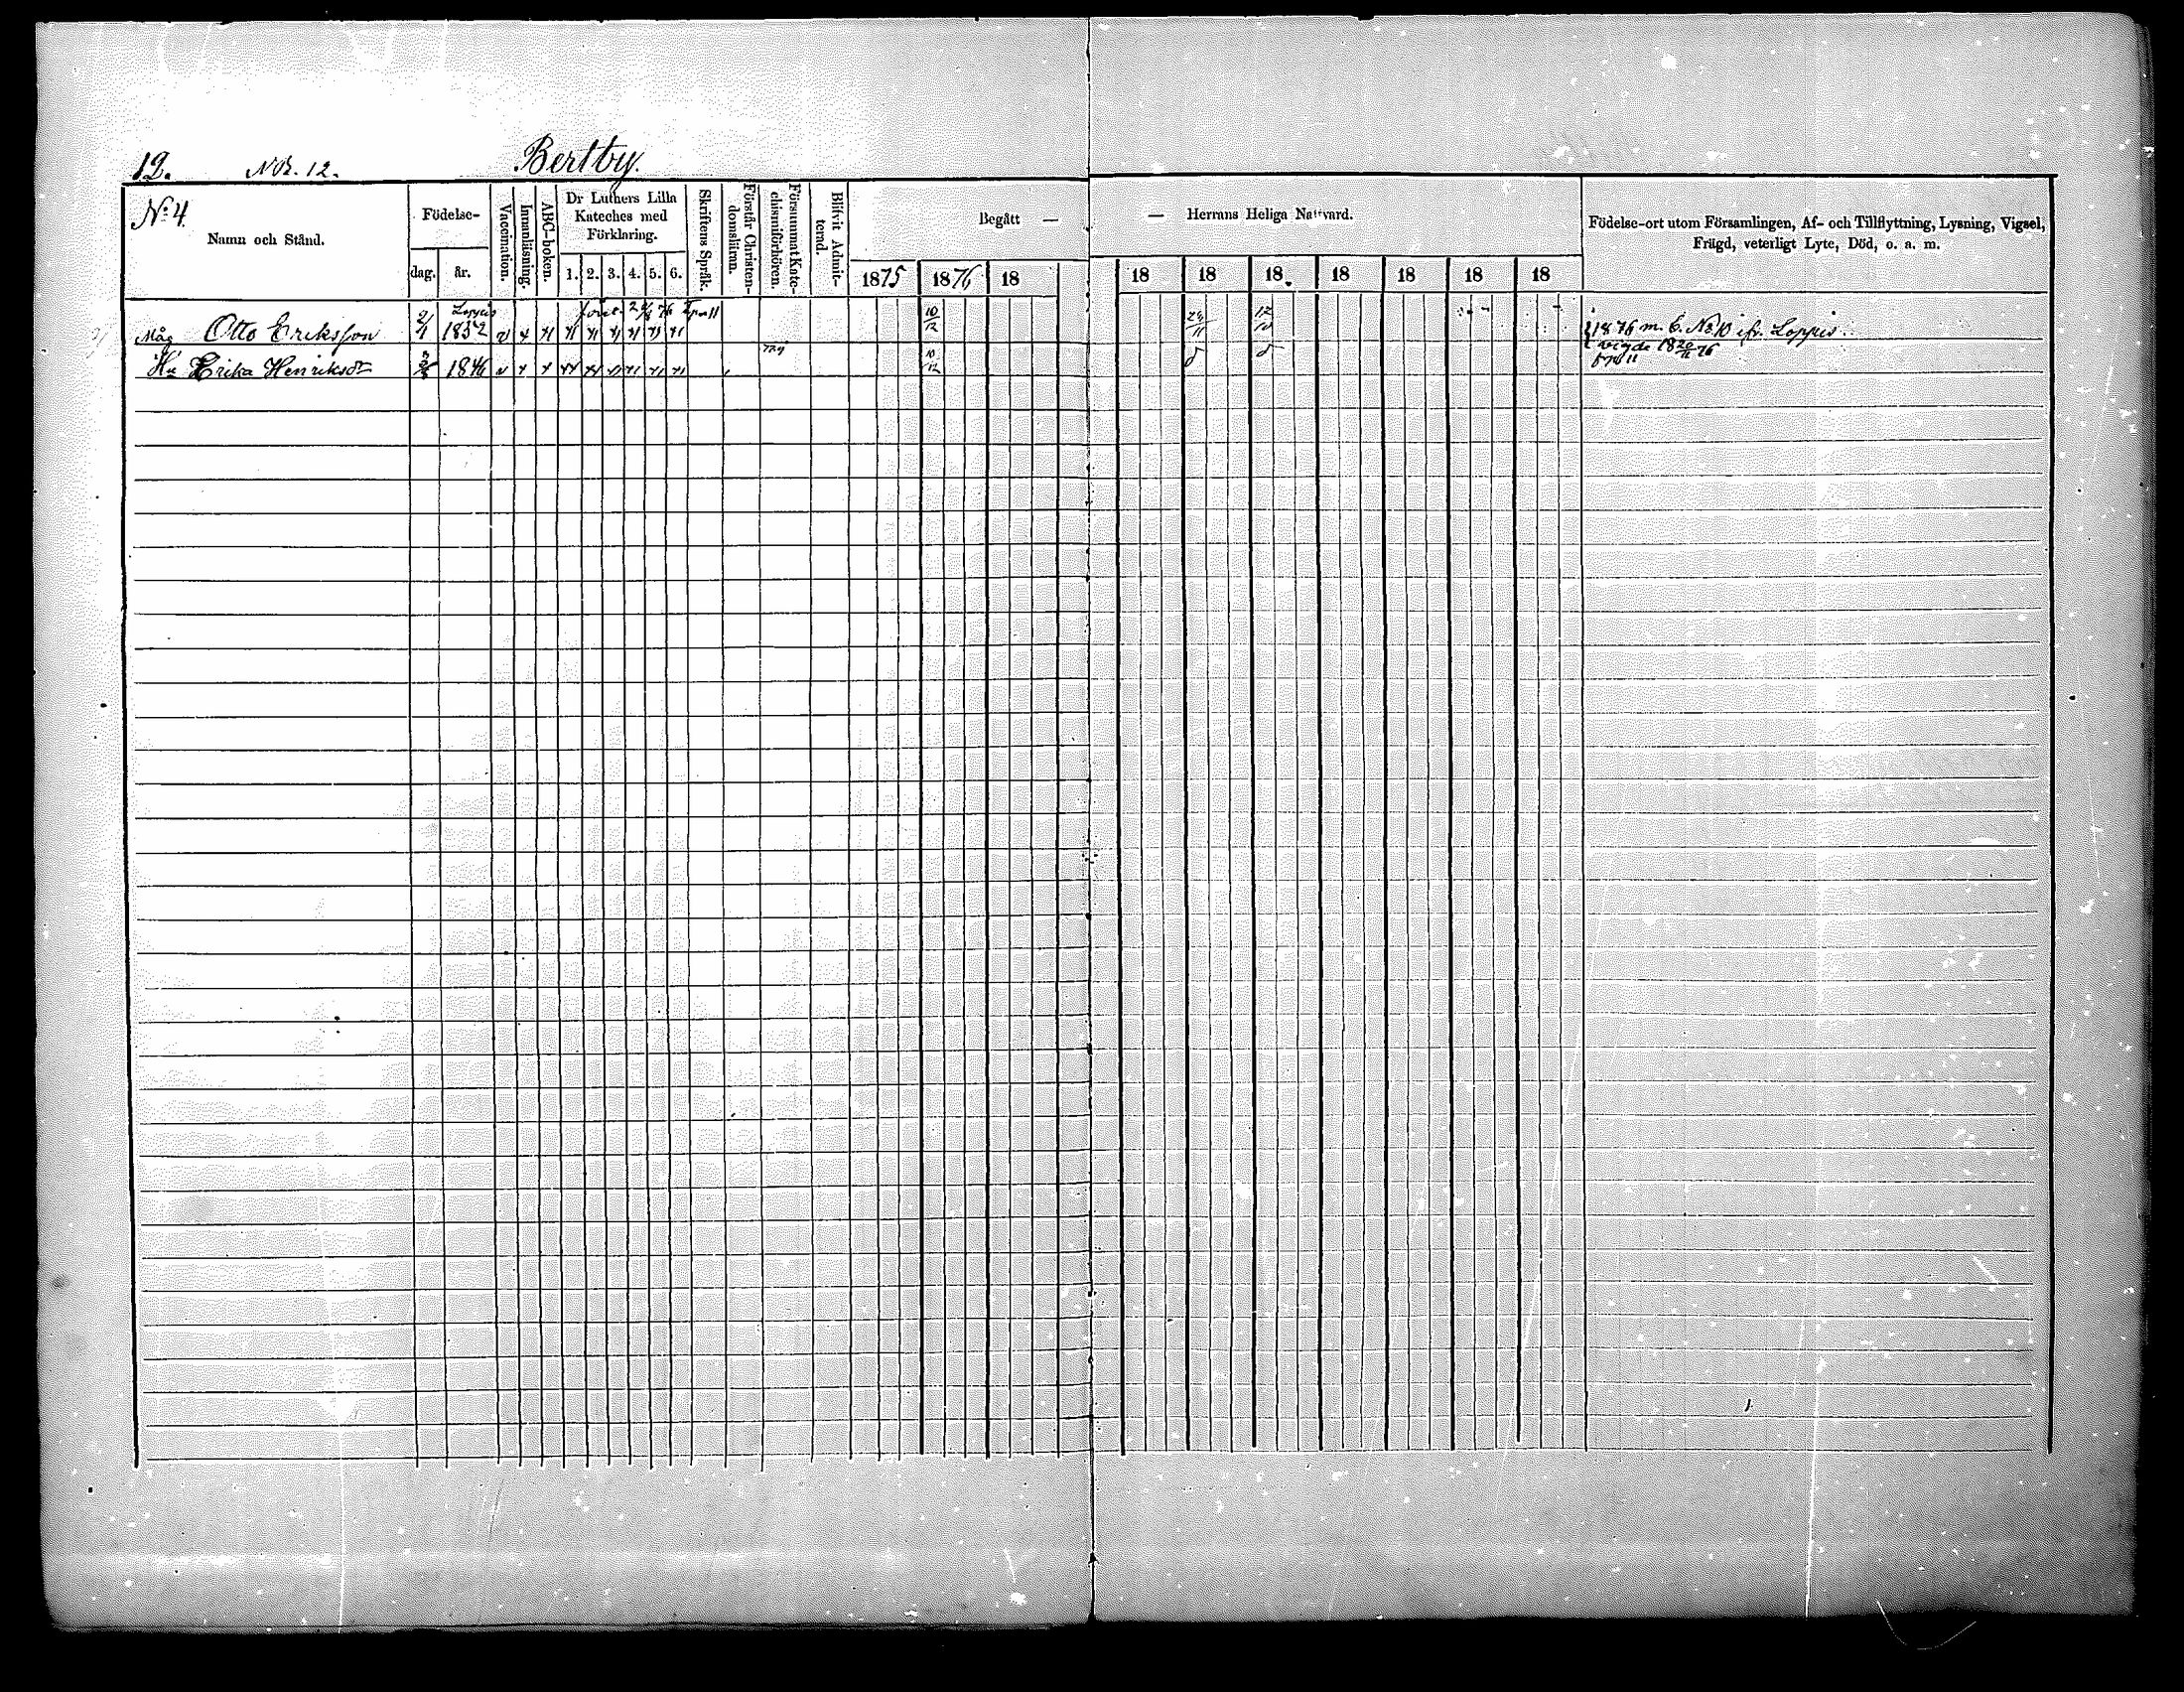 12. No. 12. Bertby.
No 4.
Namn och Stånd.
Födelse-
dag. år.
Vaccination.
Innanläsning.
ABC-boken.
Dr Luthers Lilla
Kateches med
Förklaring.
1. 2. 3. 4. 5. 6.
Skriftens Språk.
Förstår Christen-
domsläran.
Försummat Kate-
chismiförhören.
Blifvit Admit-
terad.
Begått —
— Herrans Heliga Nattvard.
1875 1876 18 18 18 18 18 18 18 18
Födelse-ort utom Församlingen, Af- och Tillflyttning, Lysning, Vigsel,
Frägd, veterligt Lyte, Död, o. a. m.
Loppis
Måg Otto Eriksson 2/1 1852 10/12 12/10 i 1876 m. b. No 10 ifr. Loppis
vigde 18 20/11 76
Hu Erika Henriksdr 1846 10/12